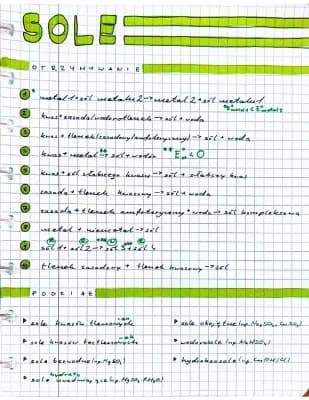 SOLE
OTRZYMYWANIE
1 * metal 1 + sól metalu 2 → metal 2 + sól metalu 1
2 kwas + zasada/wodorotlenek → sól + woda
3 kwas + tlenek (zasadowy/amfoteryczny) → sól + woda
4 kwas + metal** → sól + wodór **E° < 0
5 kwas + sól słabszego kwasu → sól + słabszy kwas
6 zasada + tlenek kwasowy → sól + woda
7 zasada + tlenek amfoteryczny + woda → sól kompleksowa
8 metal + niemetal → sól
9 sól 1 + sól 2 → sól 3 + sól 4
10 tlenek zasadowy + tlenek kwasowy → sól
PODZIAŁ
▸ sole kwasów tlenowych
▸ sole obojętne (np. Na₂SO₄, CaSO₄)
▸ sole kwasów beztlenowych
▸ wodorosole (np. NaHSO₄)
▸ sole bezwodne (np. MgSO₄)
▸ hydroksosole
hydraty
▸ sole uwodnione (np. MgSO₄